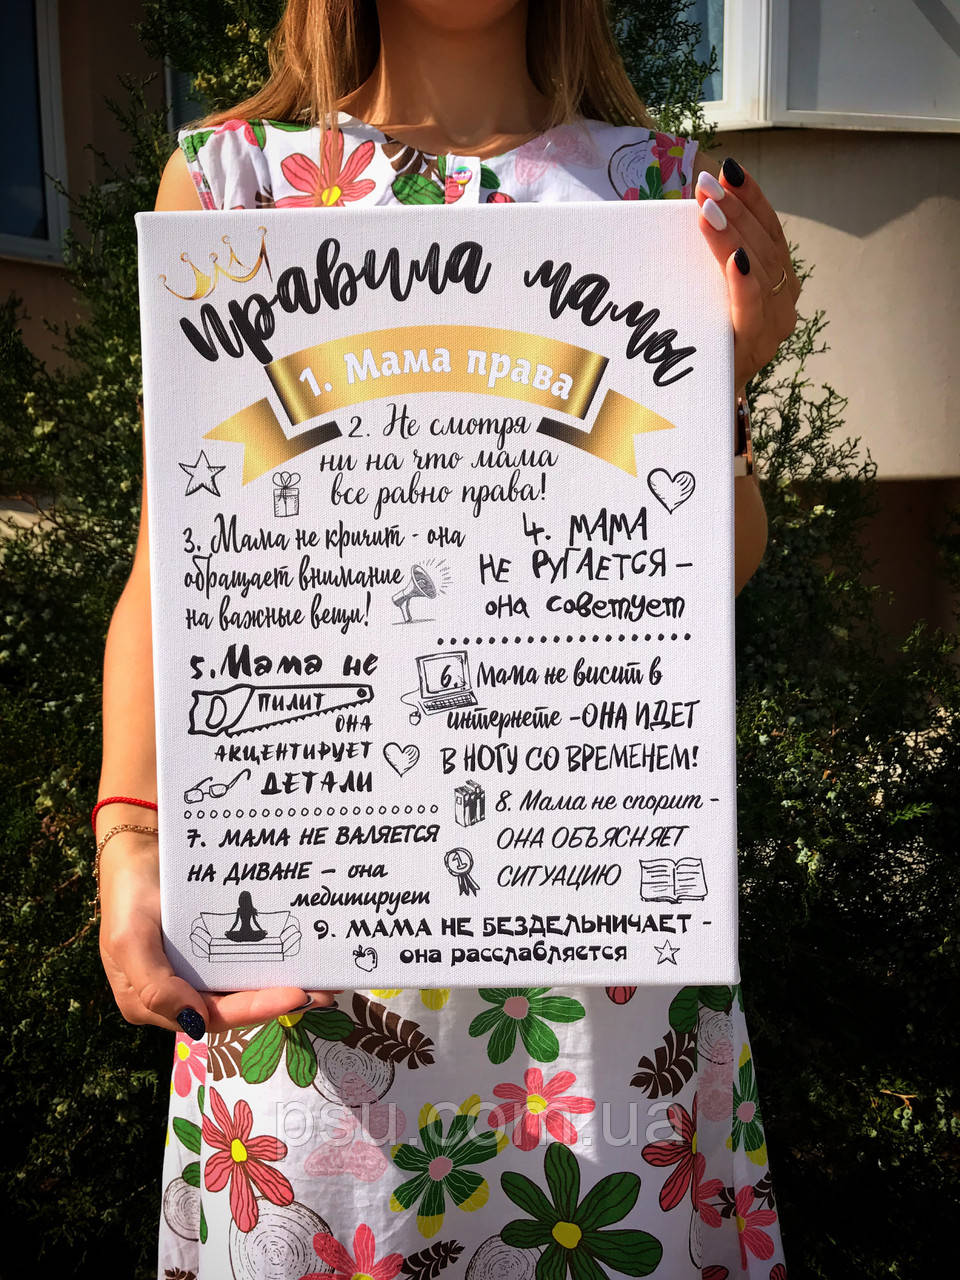 правила мамы
1. Мама права
2. Не смотря
ни на что мама
все равно права!
3. Мама не кричит - она
обращает внимание
на важные вещи!
4. МАМА
НЕ РУГАЕТСЯ –
она советует
5. Мама не
ПИЛИТ
ОНА
АКЦЕНТИРУЕТ
ДЕТАЛИ
6. Мама не висит в
интернете - ОНА ИДЕТ
В НОГУ СО ВРЕМЕНЕМ!
7. МАМА НЕ ВАЛЯЕТСЯ
НА ДИВАНЕ – она
медитирует
8. Мама не спорит -
ОНА ОБЪЯСНЯЕТ
СИТУАЦИЮ
1
9. МАМА НЕ БЕЗДЕЛЬНИЧАЕТ -
она расслабляется
psu.com.ua